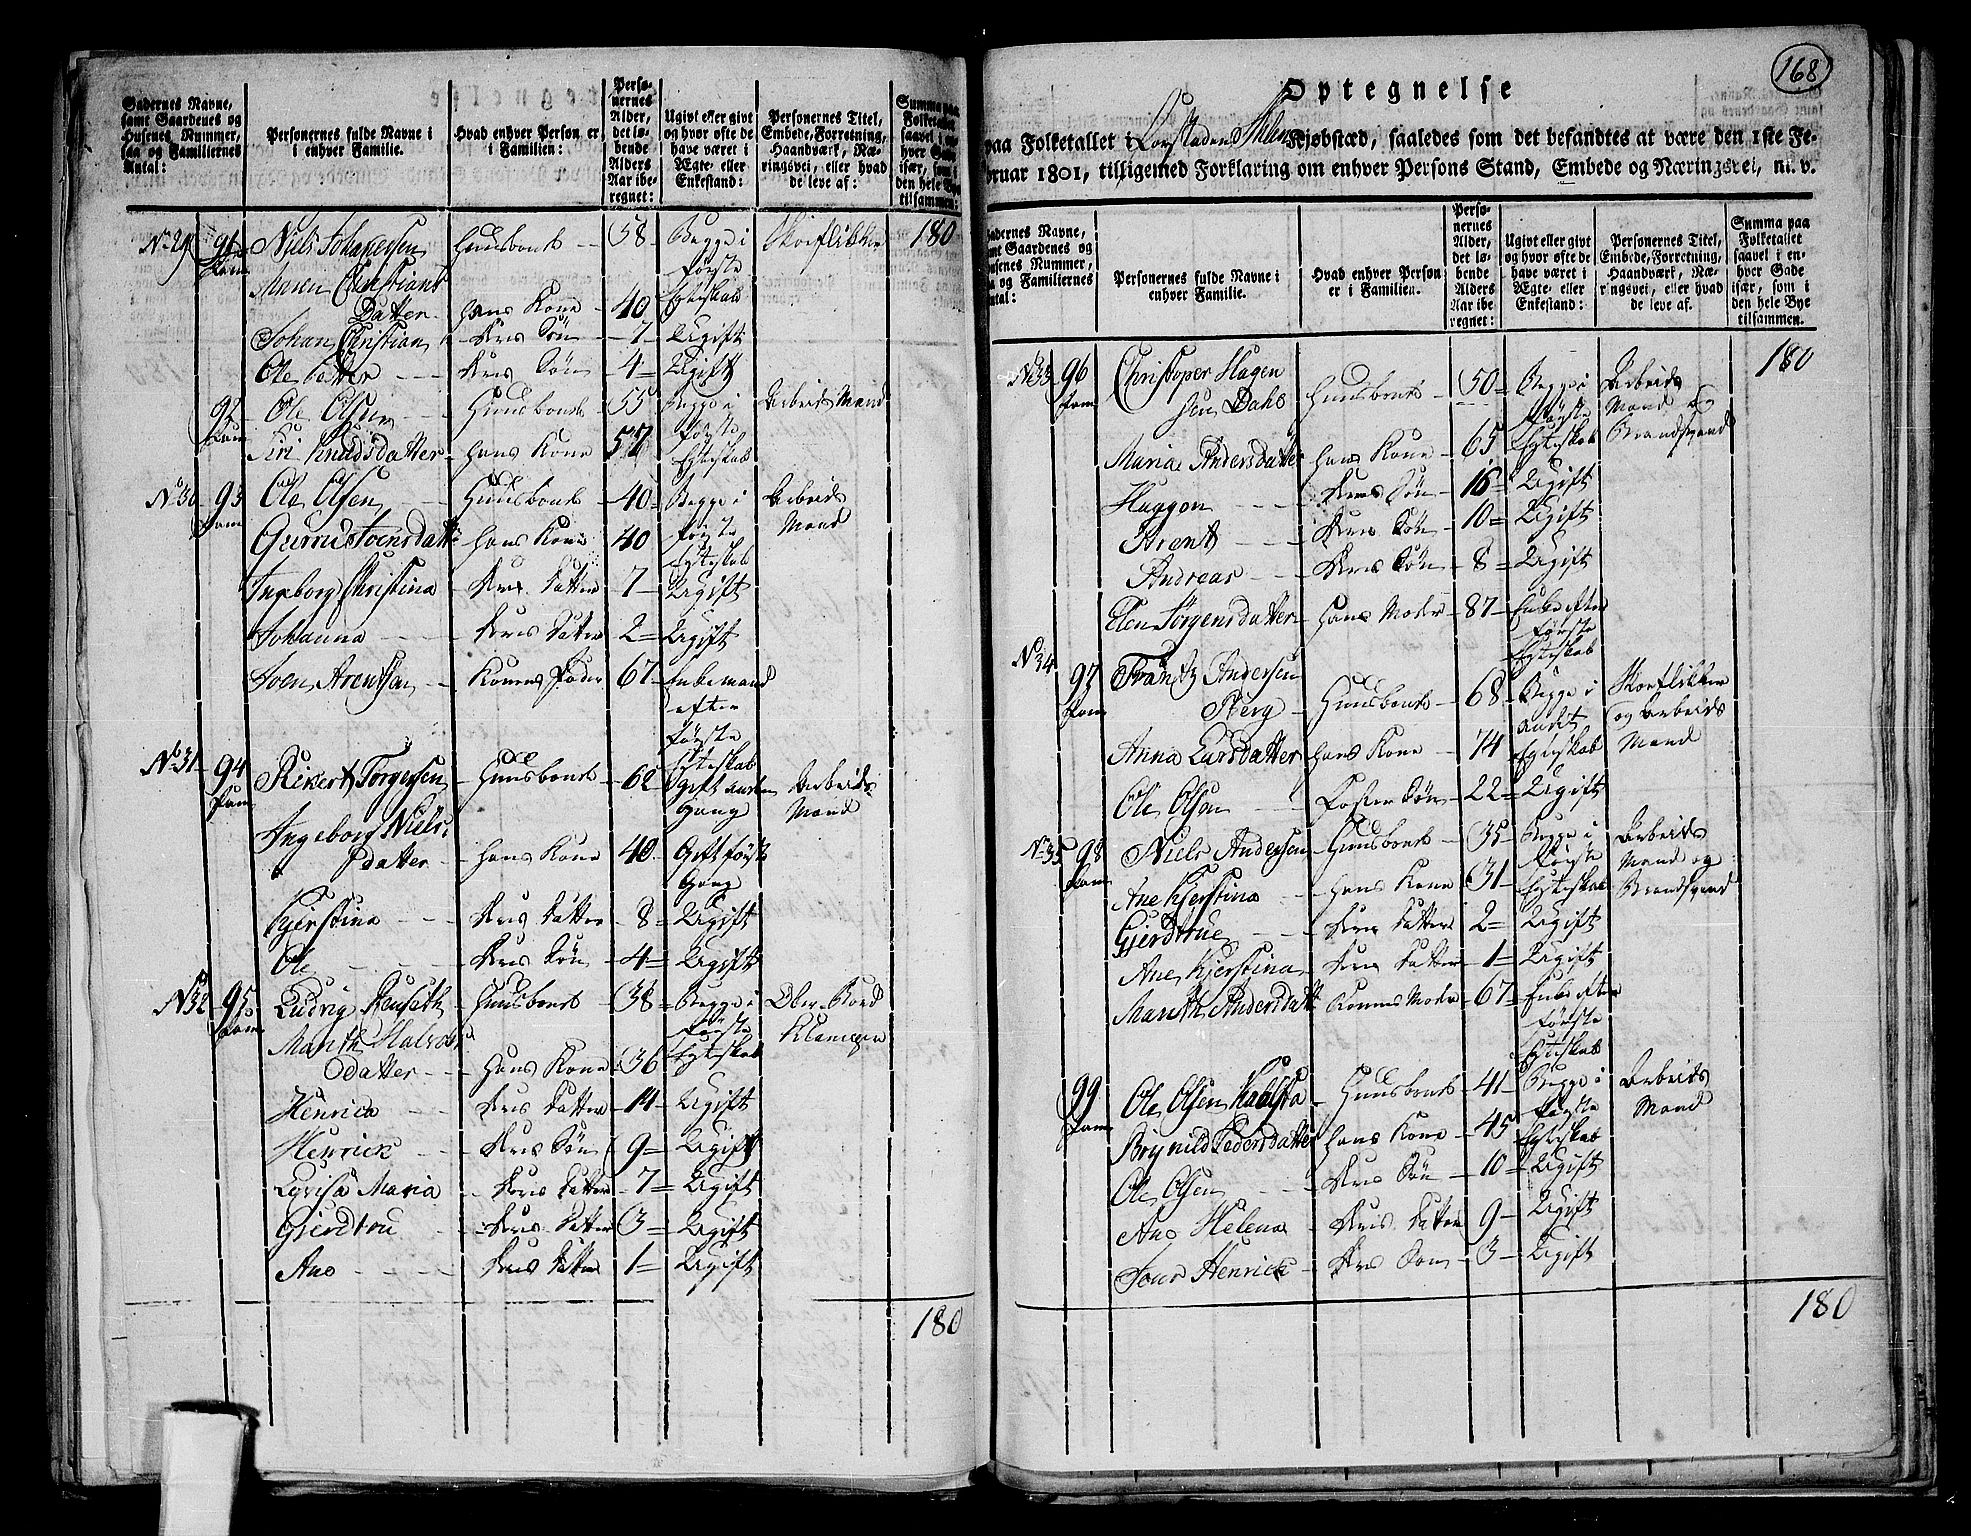 Gadernes Navne, samt Gaardenes og Husenes Nummer, saa og Familiernes Antal:
Personernes fulde Navne i enhver Familie.
Hvad enhver Person er i Familien:
Personernes Alder, det løbende Alders Aar iberegnet:
Ugivt eller givt og hvor ofte de have været i Ægte- eller Enkestand:
Personernes Titel, Embede, Forretning, Haandværk, Næringsvei, eller hvad de leve af:
Summa paa Folketallet saavel i enhver Gade især, som i den hele Bye tilsammen:
No 29 91 Fam Niels Johannesen Huusbonde 38 Begge i Skoeflikker 180
Maren Christians første
Datter hans Kone 40 Egteskab
Johan Christian deres Søn 7 Ugift
Ole deres Søn 4 Ugift
92 Fam Ole Olsen Huusbonde 55 Begge i Arbeids Mand
Siri Knudsdatter hans Kone 57 første Egteskab
No 30 93 Fam Ole Olsen Huusbonde 40 Begge i Arbeids Mand
hans Kone 40 første Egteskab
Ingeborg Christina deres Datter 7 Ugift
Johanna deres Datter 2 Ugift
Soen Arentsen Konens Fader 67 Enkemand
efter
første
Egteskab
No 31 94 Fam Rikert Torgersen Huusbonde 62 Gift anden Gang Arbeids Mand
Ingeborg Niels
datter hans Kone 40 Gift først Gang
Kjerstina deres Datter 8 Ugift
Ole deres Søn 4 Ugift
No 32 95 Fam Ludvig Huusbonde 38 Begge i
Marith Halvors første
datter hans Kone 36 Egteskab
Henrica deres Datter 14 Ugift
Henrick deres Søn 9 Ugift
Lovisa Maria deres Datter 7 Ugift
Gierdrou deres Datter 3 Ugift
Ane deres Datter 1 Ugift
180
168
Optegnelse
paa Folketallet i Skien Kjøbstæd, saaledes som det befandtes at være den 1ste Fe-
bruar 1801, tilligemed Forklaring om enhver Persons Stand, Embede og Næringsvei, m. v.
Gadernes Navne, samt Gaardenes og Husenes Nummer, saa og Familiernes Antal:
Personernes fulde Navne i enhver Familie.
Hvad enhver Person er i Familien.
Personernes Alder, det løbende Alders Aar iberegnet:
Ugivt eller givt og hvor ofte de have været i Ægte- eller Enkestand:
Personernes Titel, Embede, Forretning, Haandværk, Næringsvei, eller hvad de leve af.
Summa paa Folketallet saavel i enhver Gade især, som i den hele Bye tilsammen.
No 33 96 Fam Christoper Hagen Huusbonde 50 Begge i Arbeids 180
sen Dahs første Mand og
Maria Andersdatter hans Kone 65 Egteskab Brandsvend
Haagen deres Søn 16 Ugift
Arent deres Søn 10 Ugift
Andreas deres Søn 8 Ugift
Elen Jørgensdatter hans Moder 87 Enke efter
første
Egteskab
No 34 97 Fam Frantz Andersen
Berg Huusbonde 68 Begge i Skoeflikker
andet og Arbeids
Anna Larsdatter hans Kone 74 Egteskab Mand
Ole Olsen Foster Søn 22 Ugift
No 35 98 Fam Niels Andersen Huusbonde 35 Begge i Arbeids
første Mand og
Ane Kjerstina hans Kone 31 Egteskab Brandsvend
Gjerdrue deres Datter 2 Ugift
Ane Kjerstina deres Datter 1 Ugift
Marith Andersdatt Konens Moder 67 Enke efter
første
Egteskab
99 Fam Ole Olsen Huusbonde 41 Begge i Arbeids
første Mand
Brynild Pedersdatter hans Kone 45 Egteskab
Ole Olsen deres Søn 10 Ugift
Ane Helena deres Datter 9 Ugift
Henrick deres Søn 3 Ugift
180